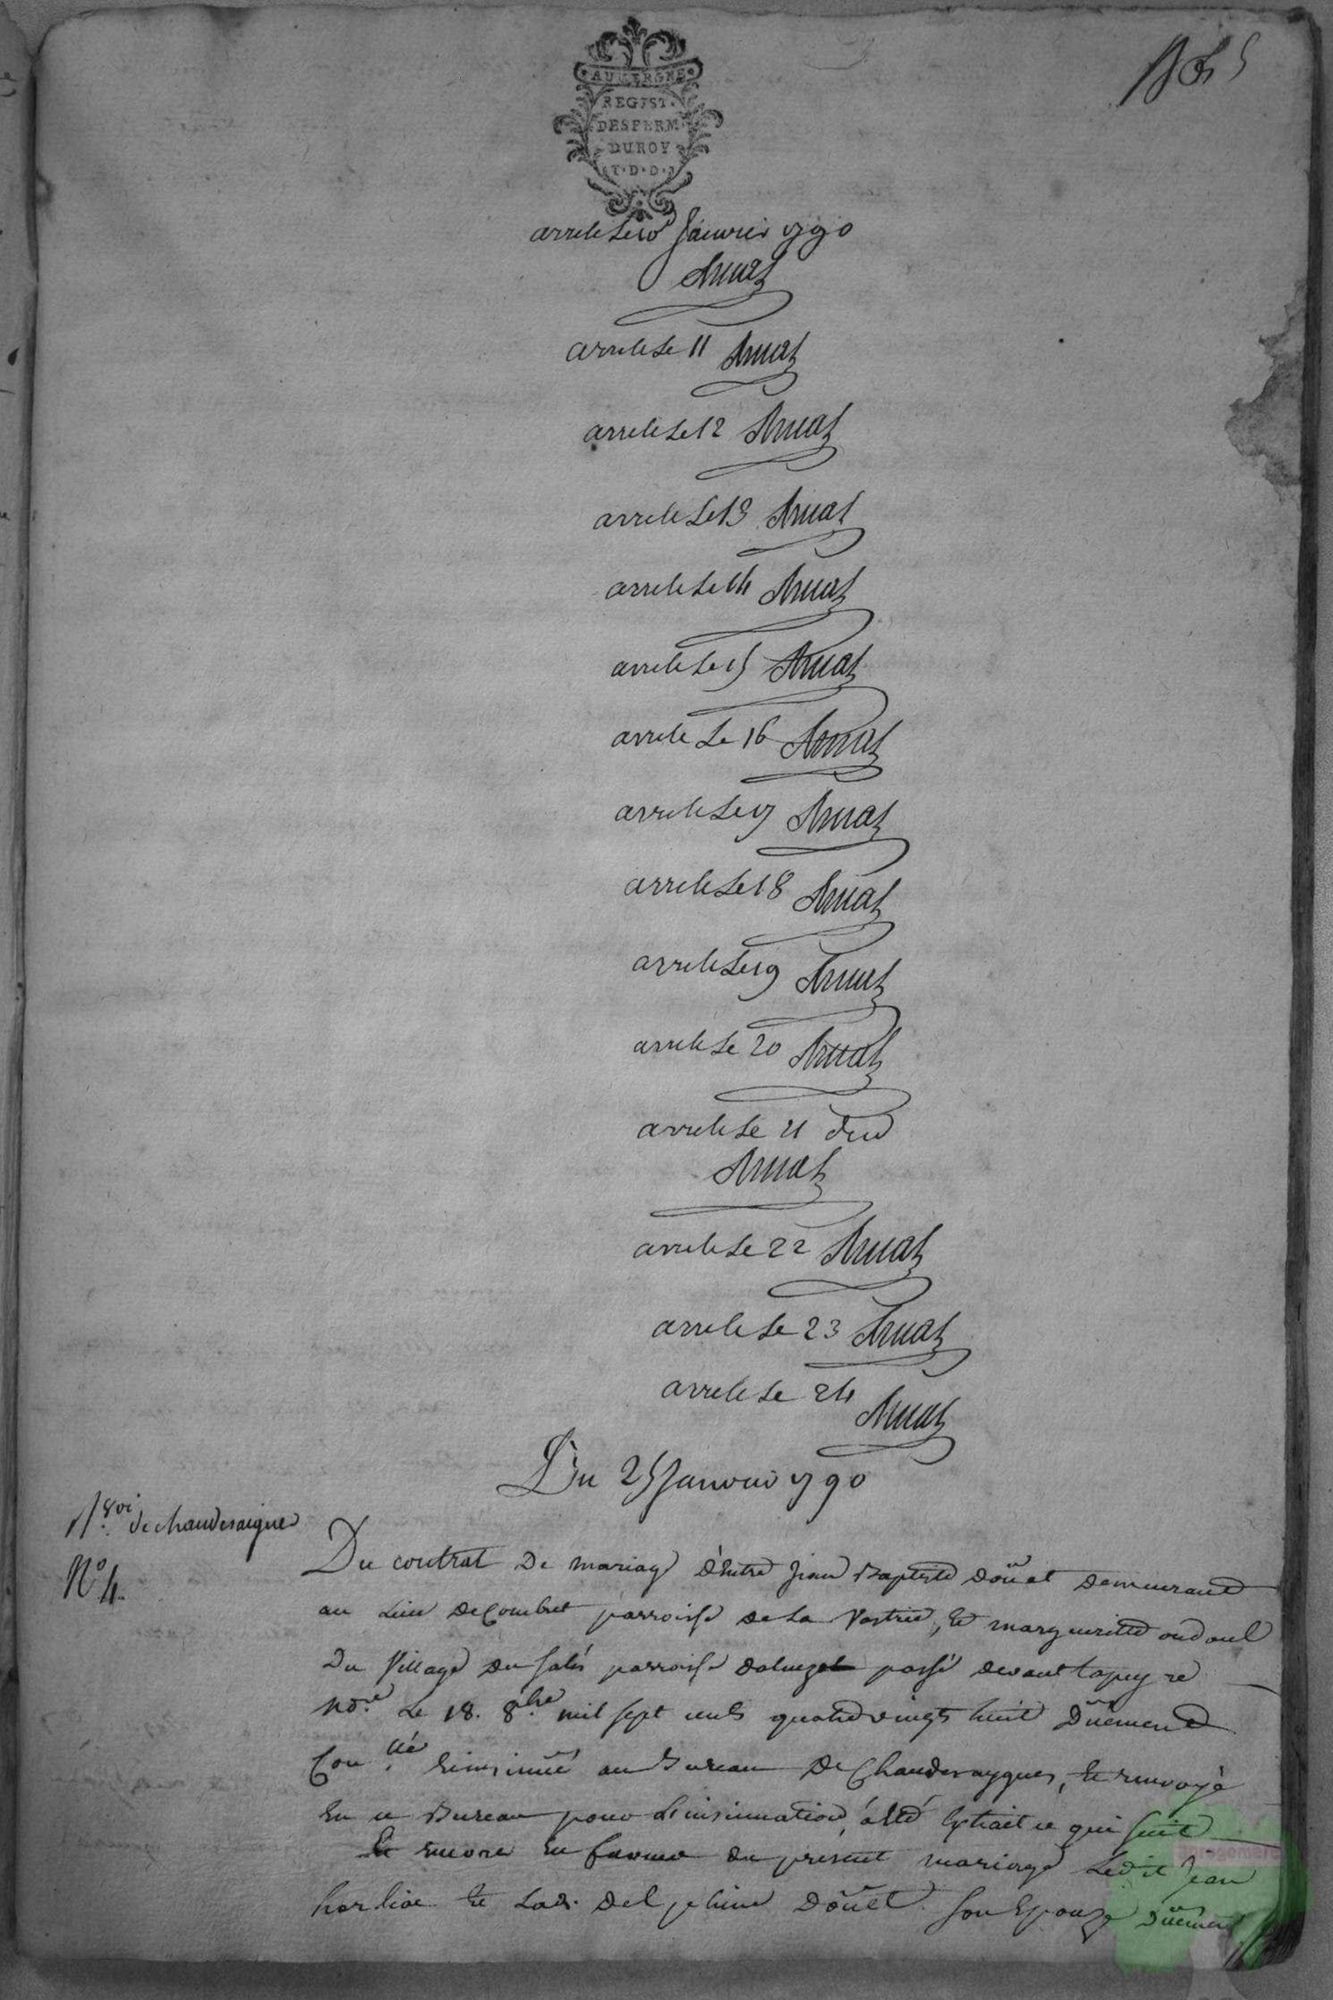 AUVERGNE
REGIST.
DESFERM
DUROY
T.D.D.
arrete Le 10 Janvier 1790
Amat
arrete Le 11 Amat
arrete Le 12 Amat
arrete Le 13 Amat
arrete Le 14 Amat
arrete Le 15 Amat
arrete Le 16 Amat
arrete Le 17 Amat
arrete Le 18 Amat
arrete Le 19 Amat
arrete Le 20 Amat
arrete Le 21 dud
Amat
arrete Le 22 Amat
arrete Le 23 Amat
arrete Le 24
Amat
Du 25 Janvier 1790
de chaudesaigues
No 4.
Du contrat De mariage d'Entre Jean Baptiste Doüet Demeurant
au Lieu De Combret parroisse De La Vastrie, Et margueritte oudoul
Du Village du parroisse passé devant Lapeyre
Nore Le 18. 8bre mil sept cents quatre vingts huit Düement
Conllé au Bureau De Chaudesaygues, Et renvoyé
En ce Bureau pour L'insinuation, a été Extrait ce qui suit
Et Encore En faveur du présent mariage Ledit Jean
Et Lad. Delphine Doüet Son Epouze Düement